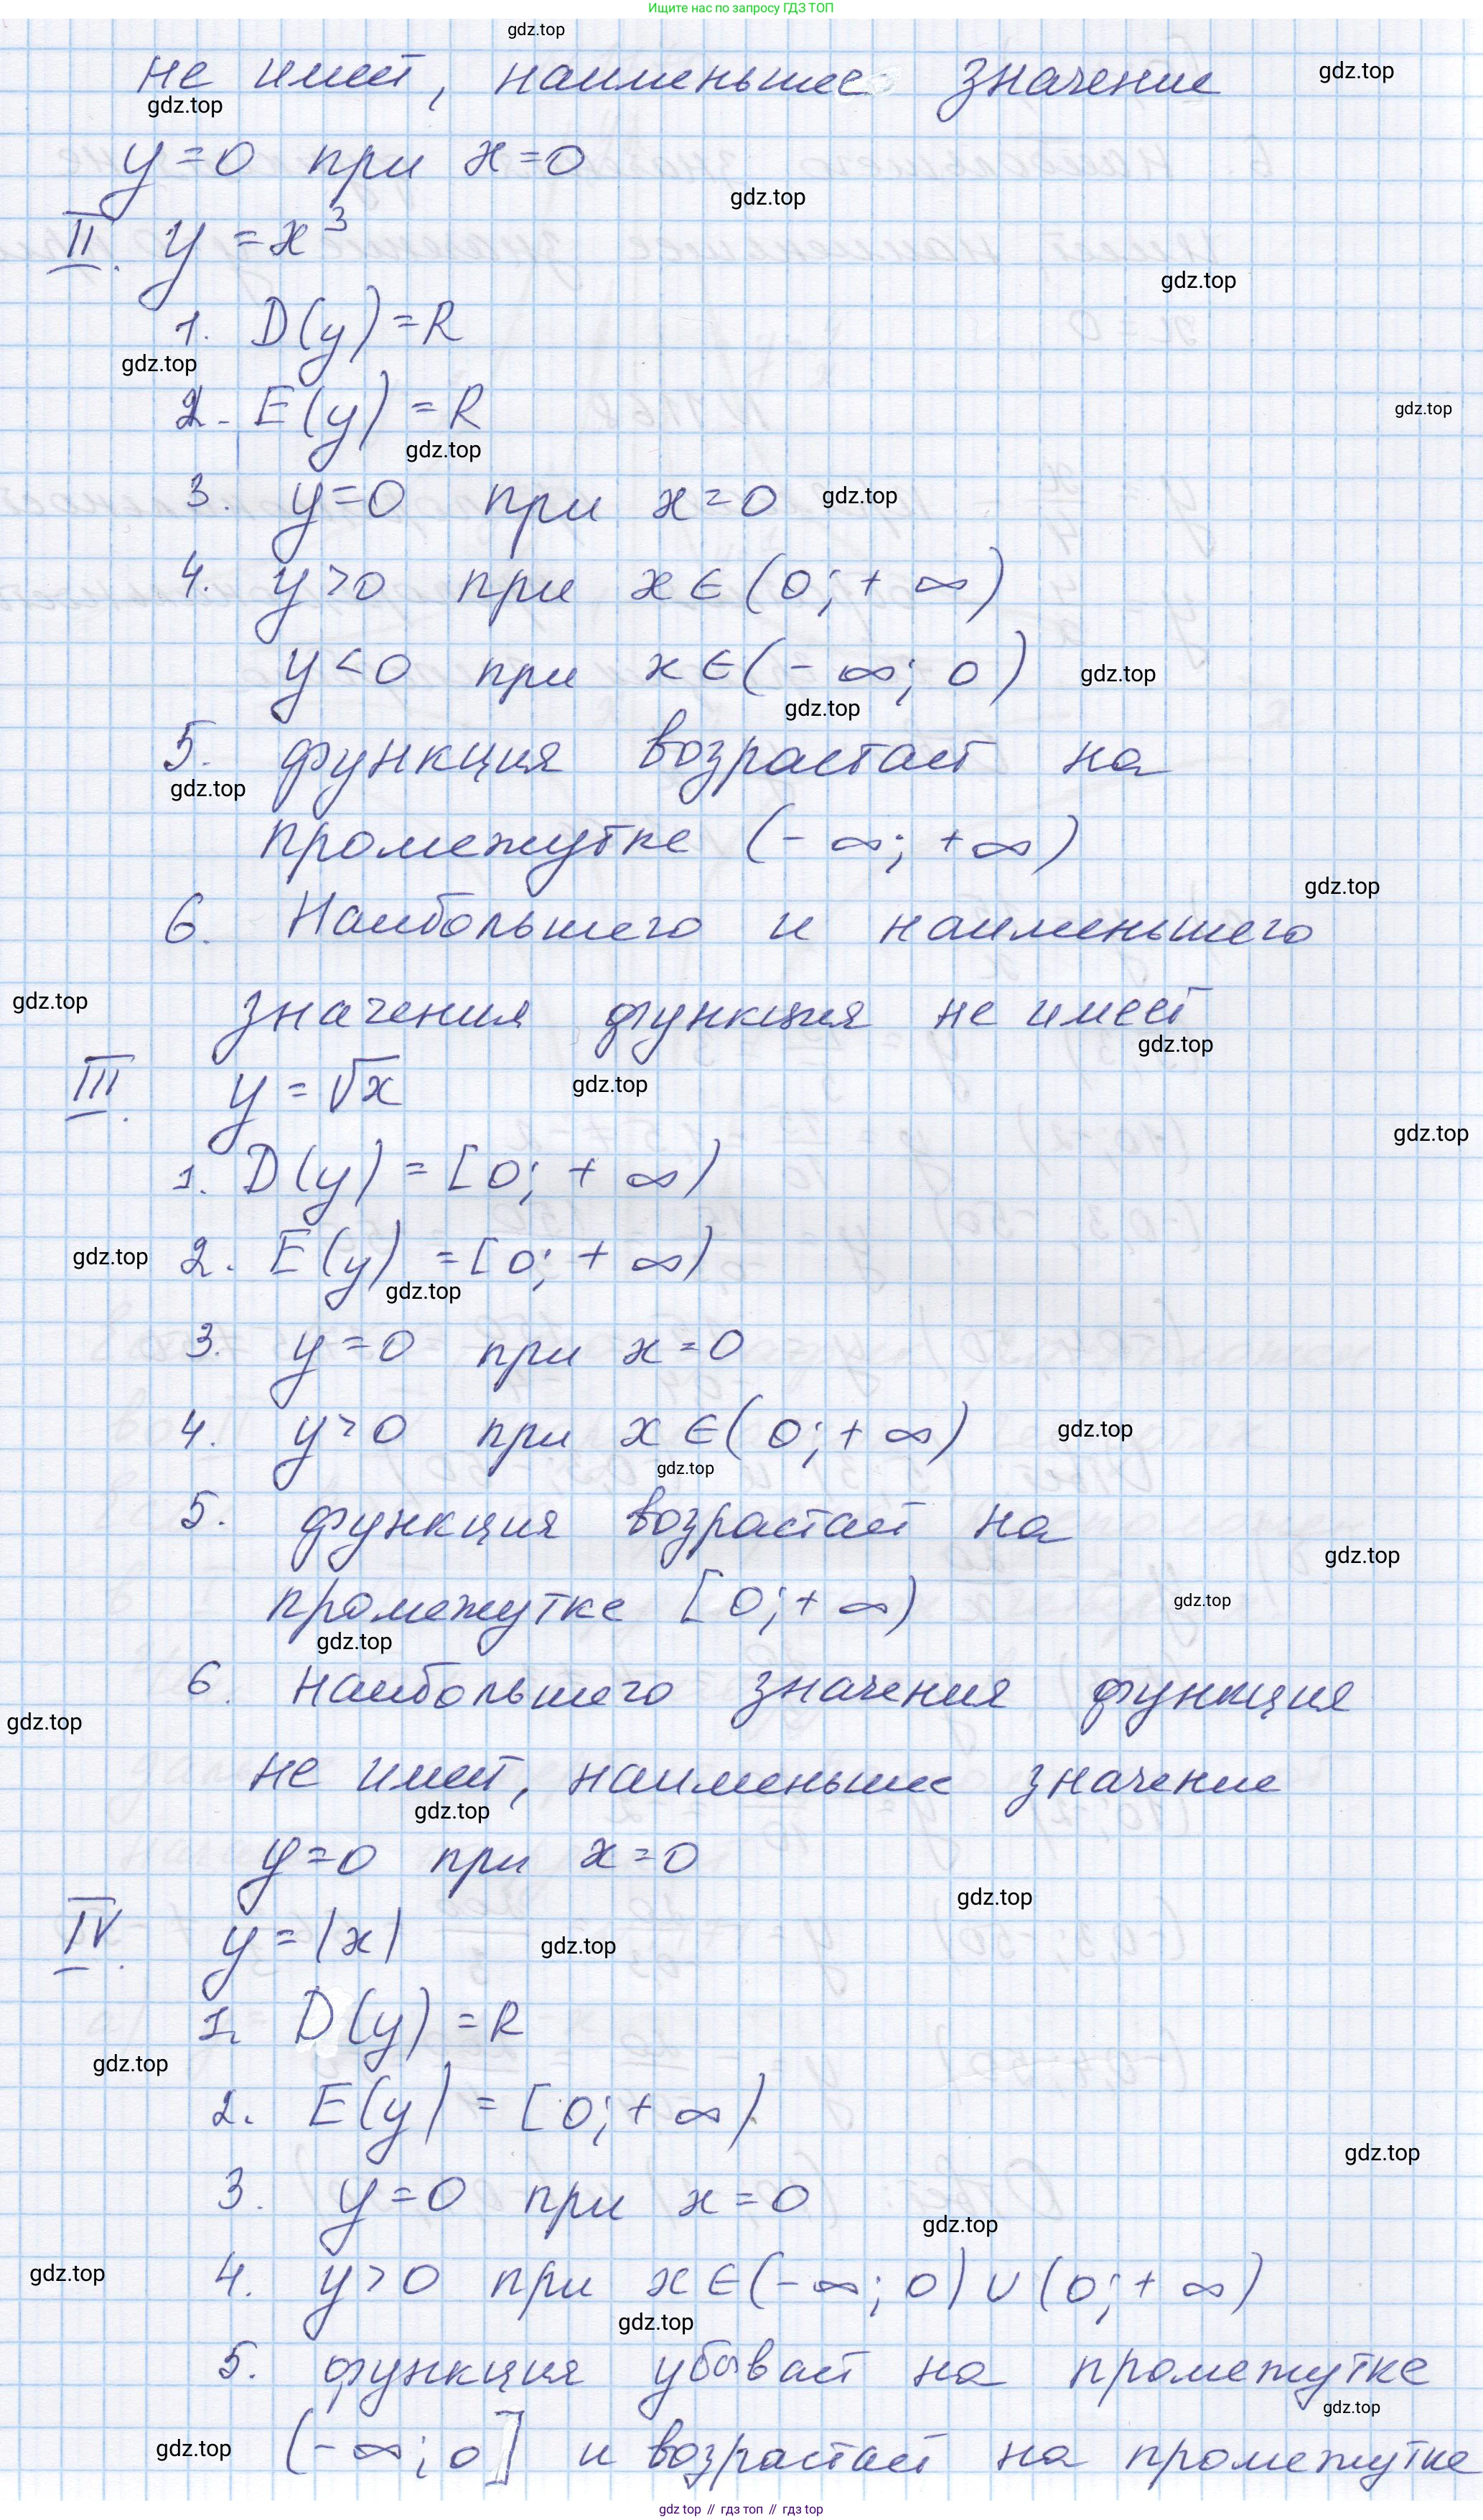 Ищите нас по запросу ГДЗ ТОП
gdz.top
не имеет, наименьшее значение
gdz.top
gdz.top
y=0 при x=0
gdz.top
II. y=x³
gdz.top
1. D(y)=R
gdz.top
2. E(y)=R
gdz.top
gdz.top
3. y=0 при x=0
gdz.top
4. y>0 при x∈(0;+∞)
y<0 при x∈(-∞;0)
gdz.top
gdz.top
5. функция возрастает на
gdz.top
промежутке (-∞;+∞)
gdz.top
6. Наибольшего и наименьшего
gdz.top
значения функция не имеет
gdz.top
III. y=√x
gdz.top
gdz.top
1. D(y)=[0;+∞)
gdz.top
2. E(y)=[0;+∞)
gdz.top
3. y=0 при x=0
4. y>0 при x∈(0;+∞)
gdz.top
gdz.top
5. функция возрастает на
gdz.top
промежутке [0;+∞)
gdz.top
gdz.top
6. наибольшего значения функция
gdz.top
не имеет, наименьшее значение
gdz.top
y=0 при x=0
gdz.top
IV. y=|x|
gdz.top
1. D(y)=R
gdz.top
2. E(y)=[0;+∞)
gdz.top
3. y=0 при x=0
gdz.top
4. y>0 при x∈(-∞;0)∪(0;+∞)
gdz.top
gdz.top
5. функция убывает на промежутке
gdz.top
(-∞;0] и возрастает на промежутке
gdz.top
gdz top // гдз топ // гдз top